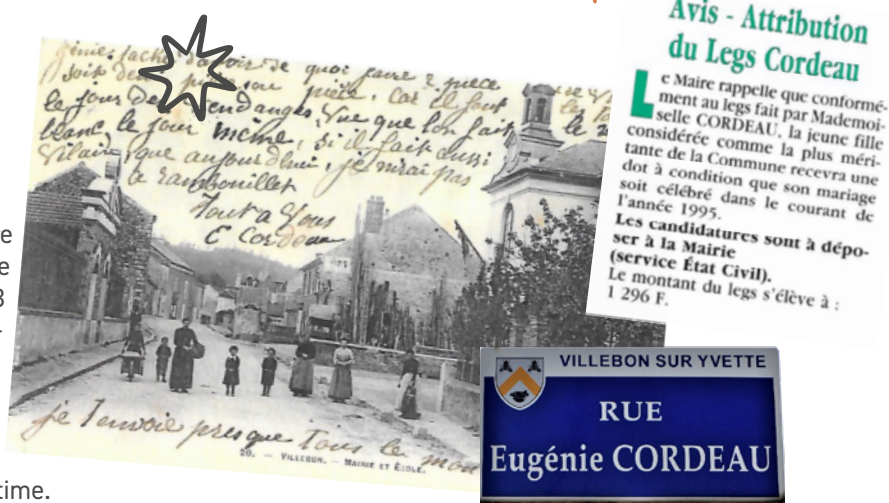 tache d'avoir de quoi faire 2 pièce
soit pièce, car il faut
le jour vendanges, Vue que l'on fait
blanc, le jour même, si il fait aussi
Vilain, que aujourd'hui, je n'irai pas
a Rambouillet
Tout a Vous
E Cordeau
je l'envoie presque Tous le
20. — VILLEBON. — MAIRIE ET ÉCOLE.
re
e
3
-
time.
Avis - Attribution
du Legs Cordeau
Le Maire rappelle que conformé-
ment au legs fait par Mademoi-
selle CORDEAU, la jeune fille
considérée comme la plus méri-
tante de la Commune recevra une
dot à condition que son mariage
soit célébré dans le courant de
l'année 1995.
Les candidatures sont à dépo-
ser à la Mairie
(service État Civil).
Le montant du legs s'élève à :
1 296 F.
VILLEBON SUR YVETTE
RUE
Eugénie CORDEAU